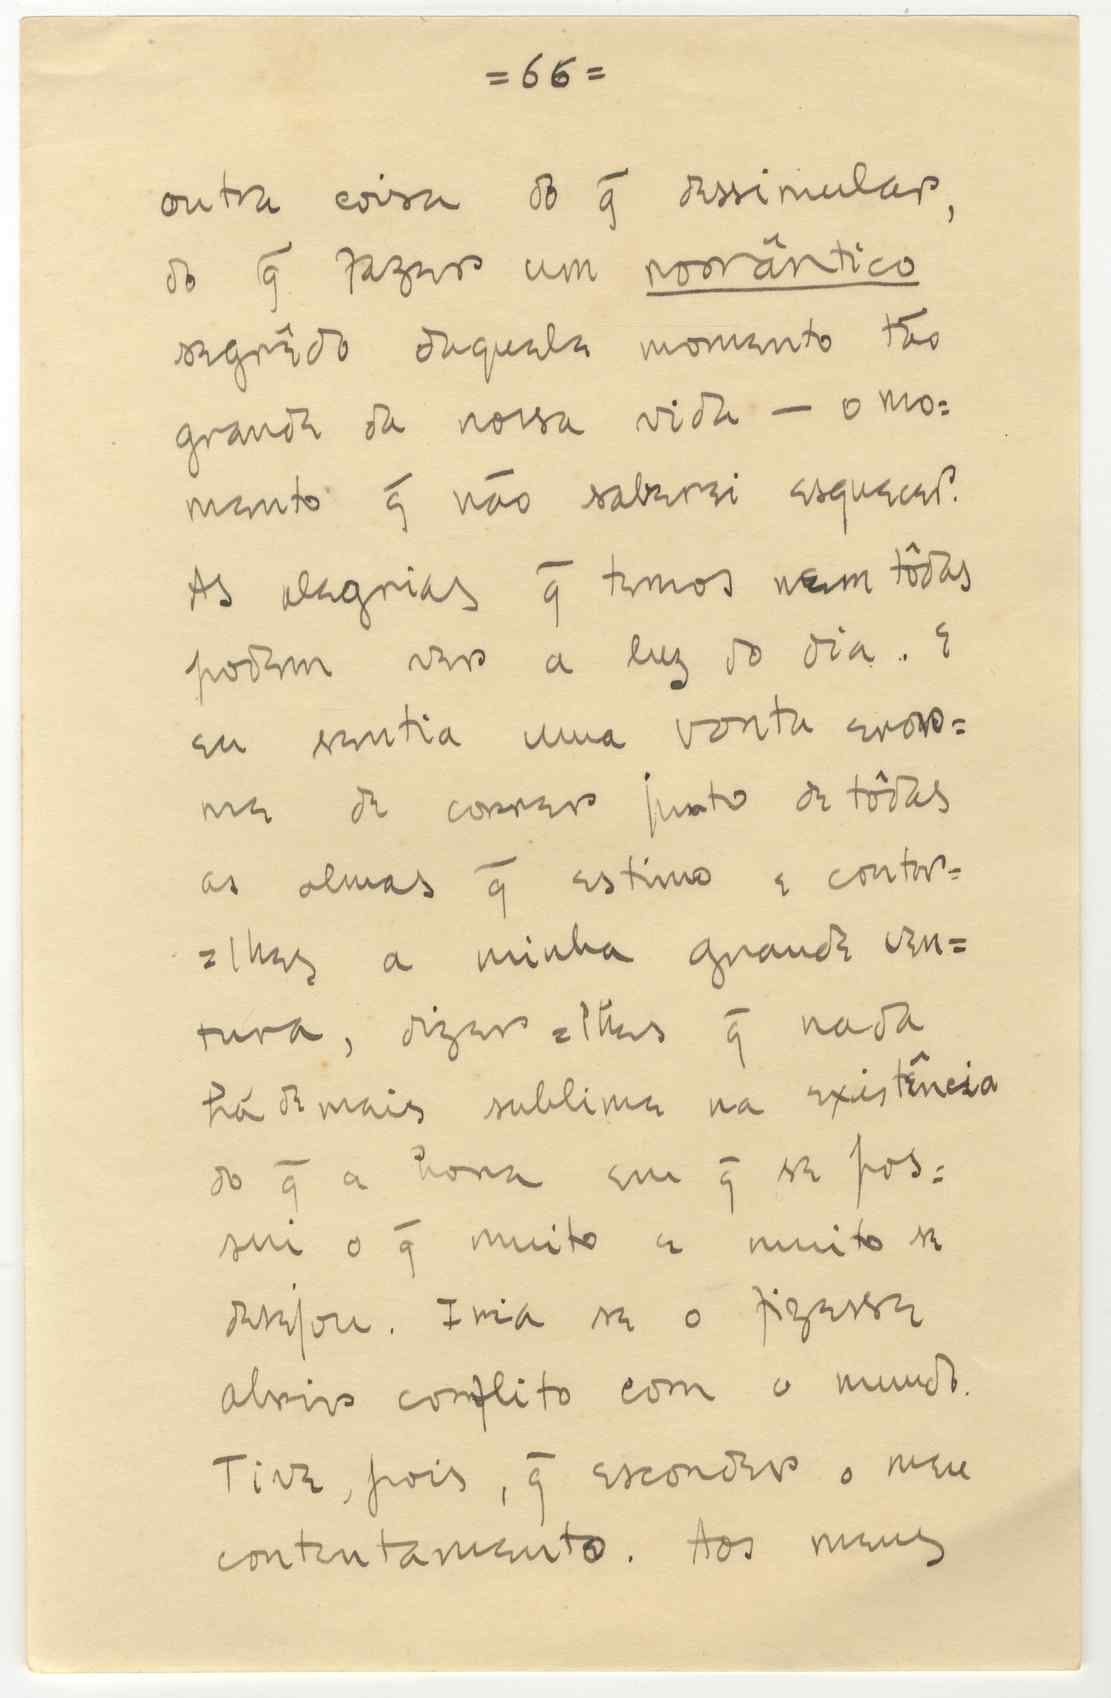 =66=
outra coisa do q̄ dessimular,
do q̄ fazer um romântico
segrêdo daquele momento tão
grande da nossa vida — o mo=
mento q̄ não saberei esquecer.
As alegrias q̄ temos nem tôdas
podem ver a luz do dia. E
eu sentia uma vonta enor=
me de correr junto de tôdas
as almas q̄ estimo e contar=
=lhes a minha grande ven=
tura, dizer=lhes q̄ nada
há de mais sublime na existência
do q̄ a hora em q̄ se pos=
sui o q̄ muito e muito se
desejou. Iria se o fizesse
abrir conflito com o mundo.
Tive, pois, q̄ esconder o meu
contentamento. Aos meus